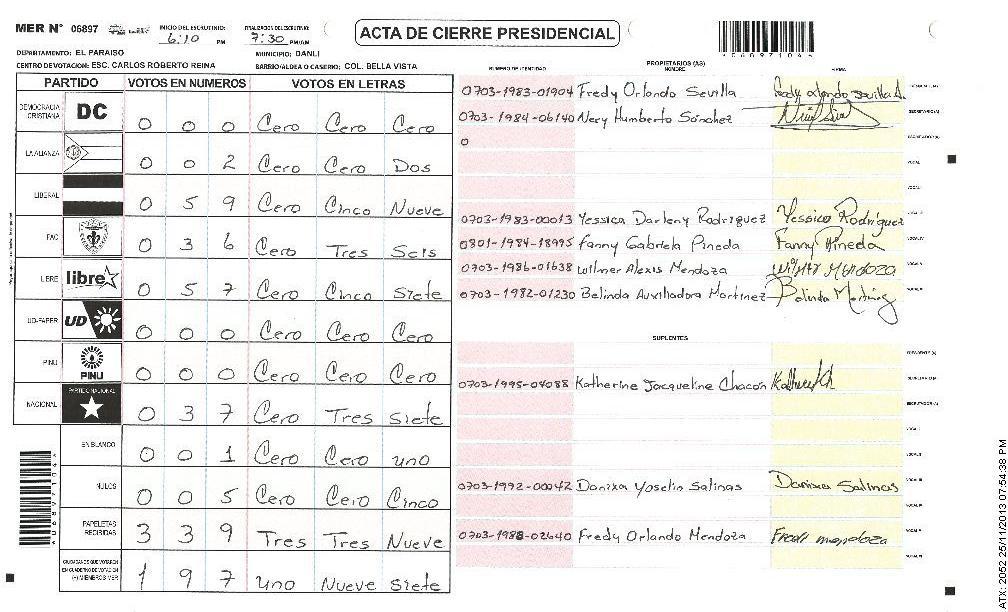 MER N° 06897 INICIO DEL ESCRUTINIO: 6:10 PM FINALIZACION DEL ESCRUTINIO: 7:30 PM/AM
ACTA DE CIERRE PRESIDENCIAL
DEPARTAMENTO: EL PARAISO MUNICIPIO: DANLI
CENTRO DE VOTACION: ESC. CARLOS ROBERTO REINA BARRIO/ALDEA O CASERIO: COL. BELLA VISTA
PARTIDO VOTOS EN NUMEROS VOTOS EN LETRAS
DEMOCRACIA CRISTIANA DC 0 0 0 Cero Cero Cero
LA ALIANZA 0 0 2 Cero Cero Dos
LIBERAL 0 5 9 Cero Cinco Nueve
FAC 0 3 6 Cero Tres Seis
LIBRE libre 0 5 7 Cero Cinco Siete
UD-FAPER UD 0 0 0 Cero Cero Cero
PINU PINU 0 0 0 Cero Cero Cero
NACIONAL PARTIDO NACIONAL 0 3 7 Cero Tres Siete
EN BLANCO 0 0 1 Cero Cero uno
NULOS 0 0 5 Cero Cero Cinco
PAPELETAS RECIBIDAS 3 3 9 Tres Tres Nueve
CIUDADANOS QUE VOTARON EN CUADERNO DE VOTACION (+) MIEMBROS MER 1 9 7 uno Nueve Siete
PROPIETARIOS (AS)
NUMERO DE IDENTIDAD NOMBRE FIRMA
0703-1983-01904 Fredy Orlando Sevilla
0703-1984-06140 Nery Humberto Sánchez
0
0703-1983-00013 Yessica Darleny Rodriguez Yessica Rodriguez
0801-1984-18995 Fanny Gabriela Pineda Fanny Pineda
0703-1986-01638 Wilmer Alexis Mendoza Wilmer Mendoza
0703-1982-01230 Belinda Auxiliadora Martinez Belinda Martinez
SUPLENTES
0703-1995-04088 Katherine Jacqueline Chacón
0703-1992-00042 Danixa Yoselin Salinas Danixa Salinas
0703-1988-02640 Fredy Orlando Mendoza Fredi mendoza
*068971043*
ATX: 2052 25/11/2013 07:54:38 PM